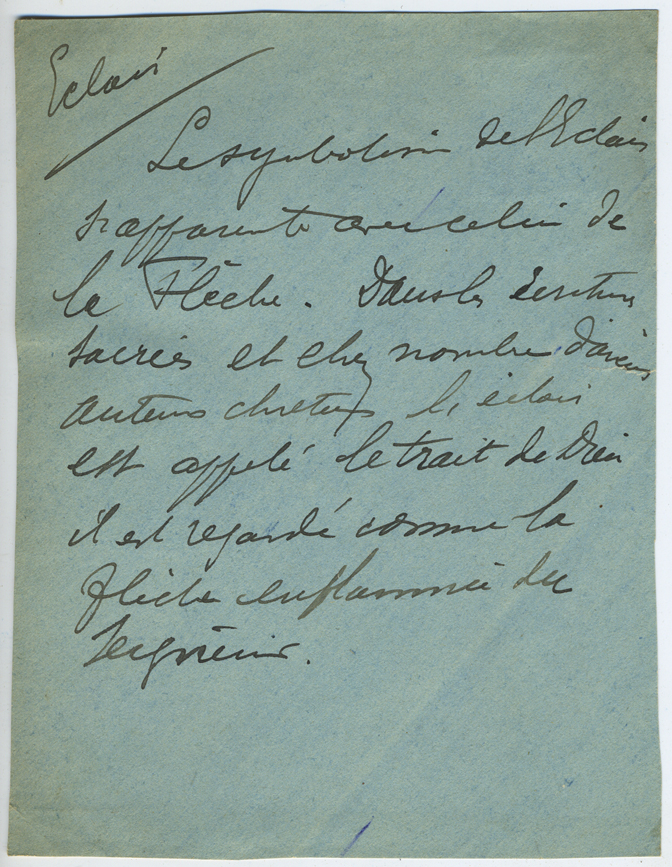 Eclair
Le symbolisme de l'Eclair
s'apparente avec celui de
la Flèche. Dans les Ecritures
sacrées et chez nombre d'anciens
auteurs chrétiens l'éclair
est appelé le trait de Dieu
il est regardé comme la
flèche enflammée du
Seigneur.